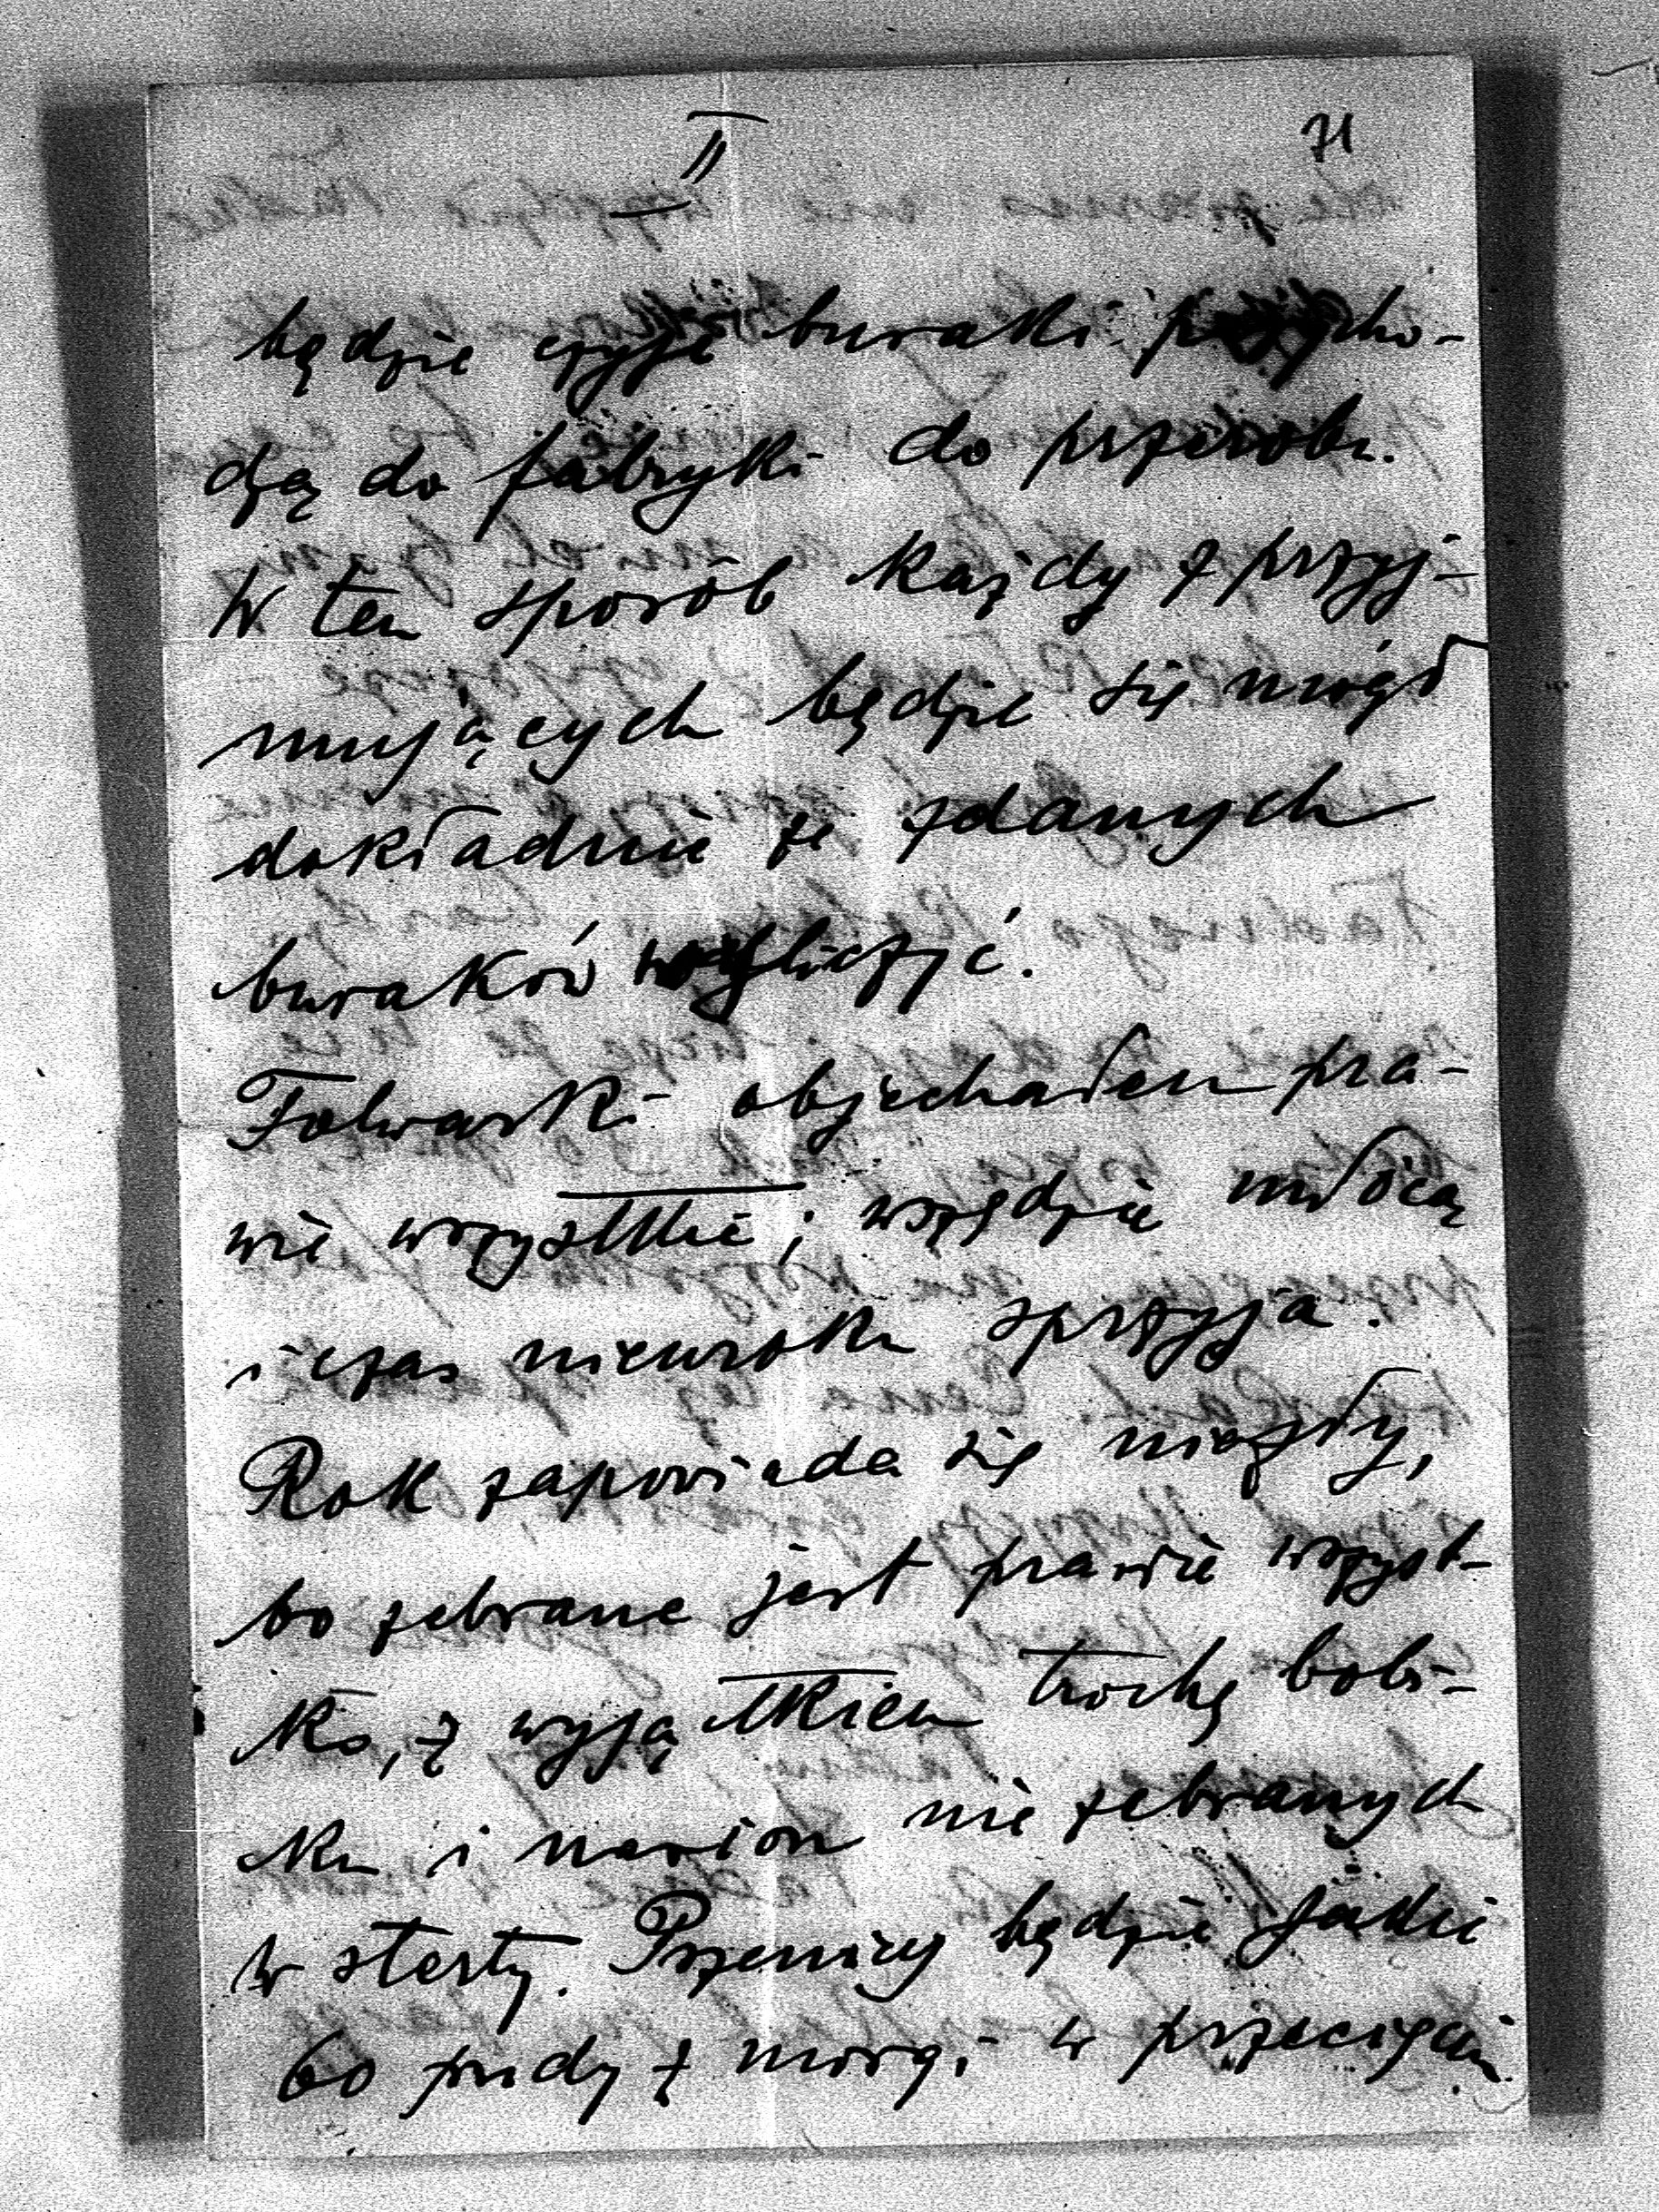 II
71
będzie czyje buraki przycho-
dzą do fabryki do przerobu.
W ten sposób każdy z przyj-
mujących będzie się mógł
dokładnie ze zdanych
buraków wyliczyć.
Folwarki objechałem pra-
wie wszystkie; wszędzie młócą
i czas nieuroku sprzyja.
Rok zapowiada się niezły,
bo zebrane jest prawie wszyst-
ko, z wyjątkiem trochę bobi-
ku i nasion nie zebranych
w sterty. Pszenicy będzie jakie
60 pudy z morgi w przecięciu